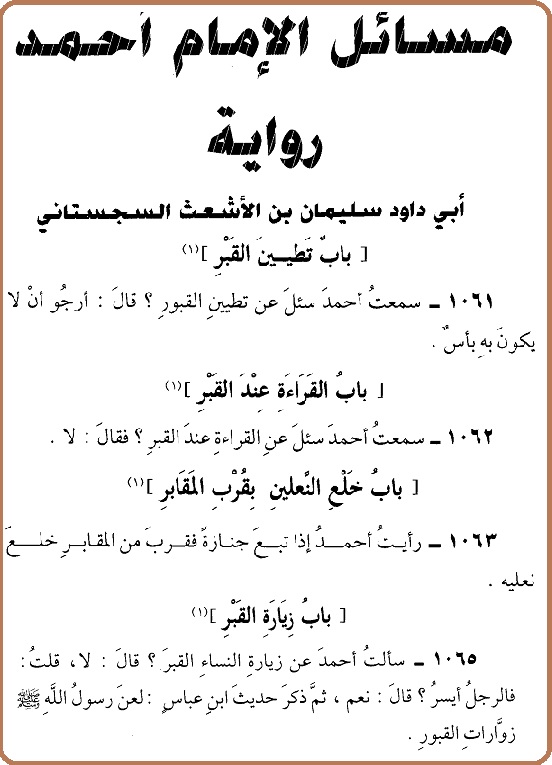 مسائل الإمام أحمد
رواية
أبي داود سليمان بن الأشعث السجستاني
[ بابُ تَطيينَ القَبْرِ ](١)
١٠٦١ ـ سمعتُ أحمدَ سئلَ عن تطيينِ القبورِ ؟ قالَ : أرجُو أنْ لا
يكونَ بهِ بأسٌ .
[ بابُ القَرَاءَةِ عِنْدَ القَبْرِ ](١)
١٠٦٢ ـ سمعتُ أحمدَ سئلَ عنِ القراءةِ عندَ القبرِ ؟ فقالَ : لا .
[ بابُ خَلْعِ النَّعلينِ بِقُرْبِ المَقَابرِ ](١)
١٠٦٣ ـ رأيتُ أحمدَ إذا تبعَ جنازةً فقربَ من المقابرِ خلعَ
نعليه .
[ بابُ زِيَارَةِ القَبْرِ ](١)
١٠٦٥ ـ سألتُ أحمدَ عن زيارةِ النساءِ القبرَ ؟ قالَ : لا ، قلتُ :
فالرجلُ أيسرُ ؟ قالَ : نعم ، ثمَّ ذكرَ حديثَ ابنِ عباسٍ : لعنَ رسولُ اللَّهِ ﷺ
زوَّاراتِ القبورِ .